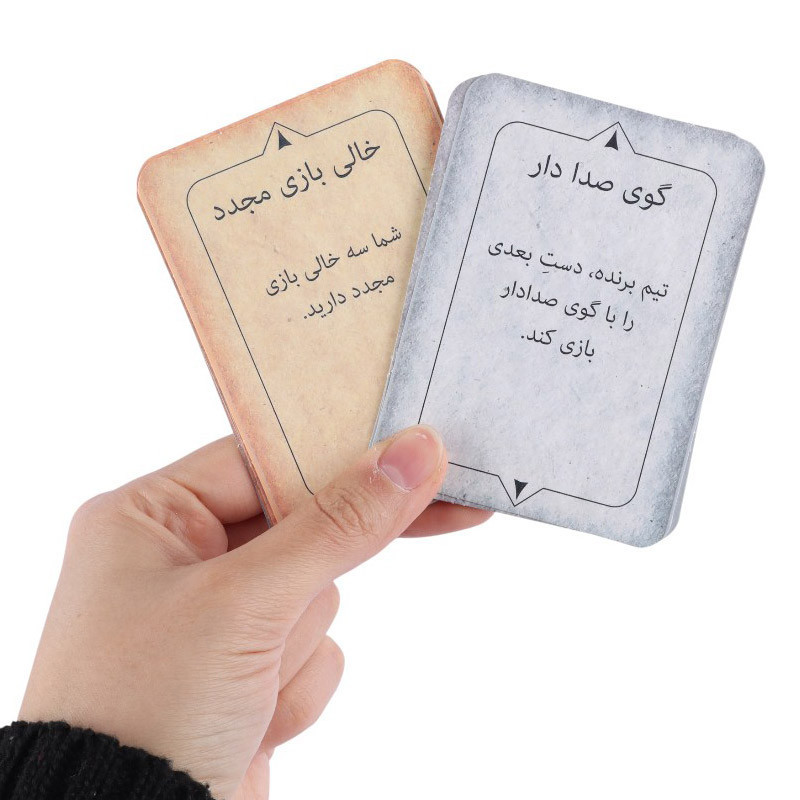 خالی بازی مجدد
شما سه خالی بازی
مجدد دارید.
گوی صدا دار
تیم برنده، دستِ بعدی
را با گوی صدادار
بازی کند.